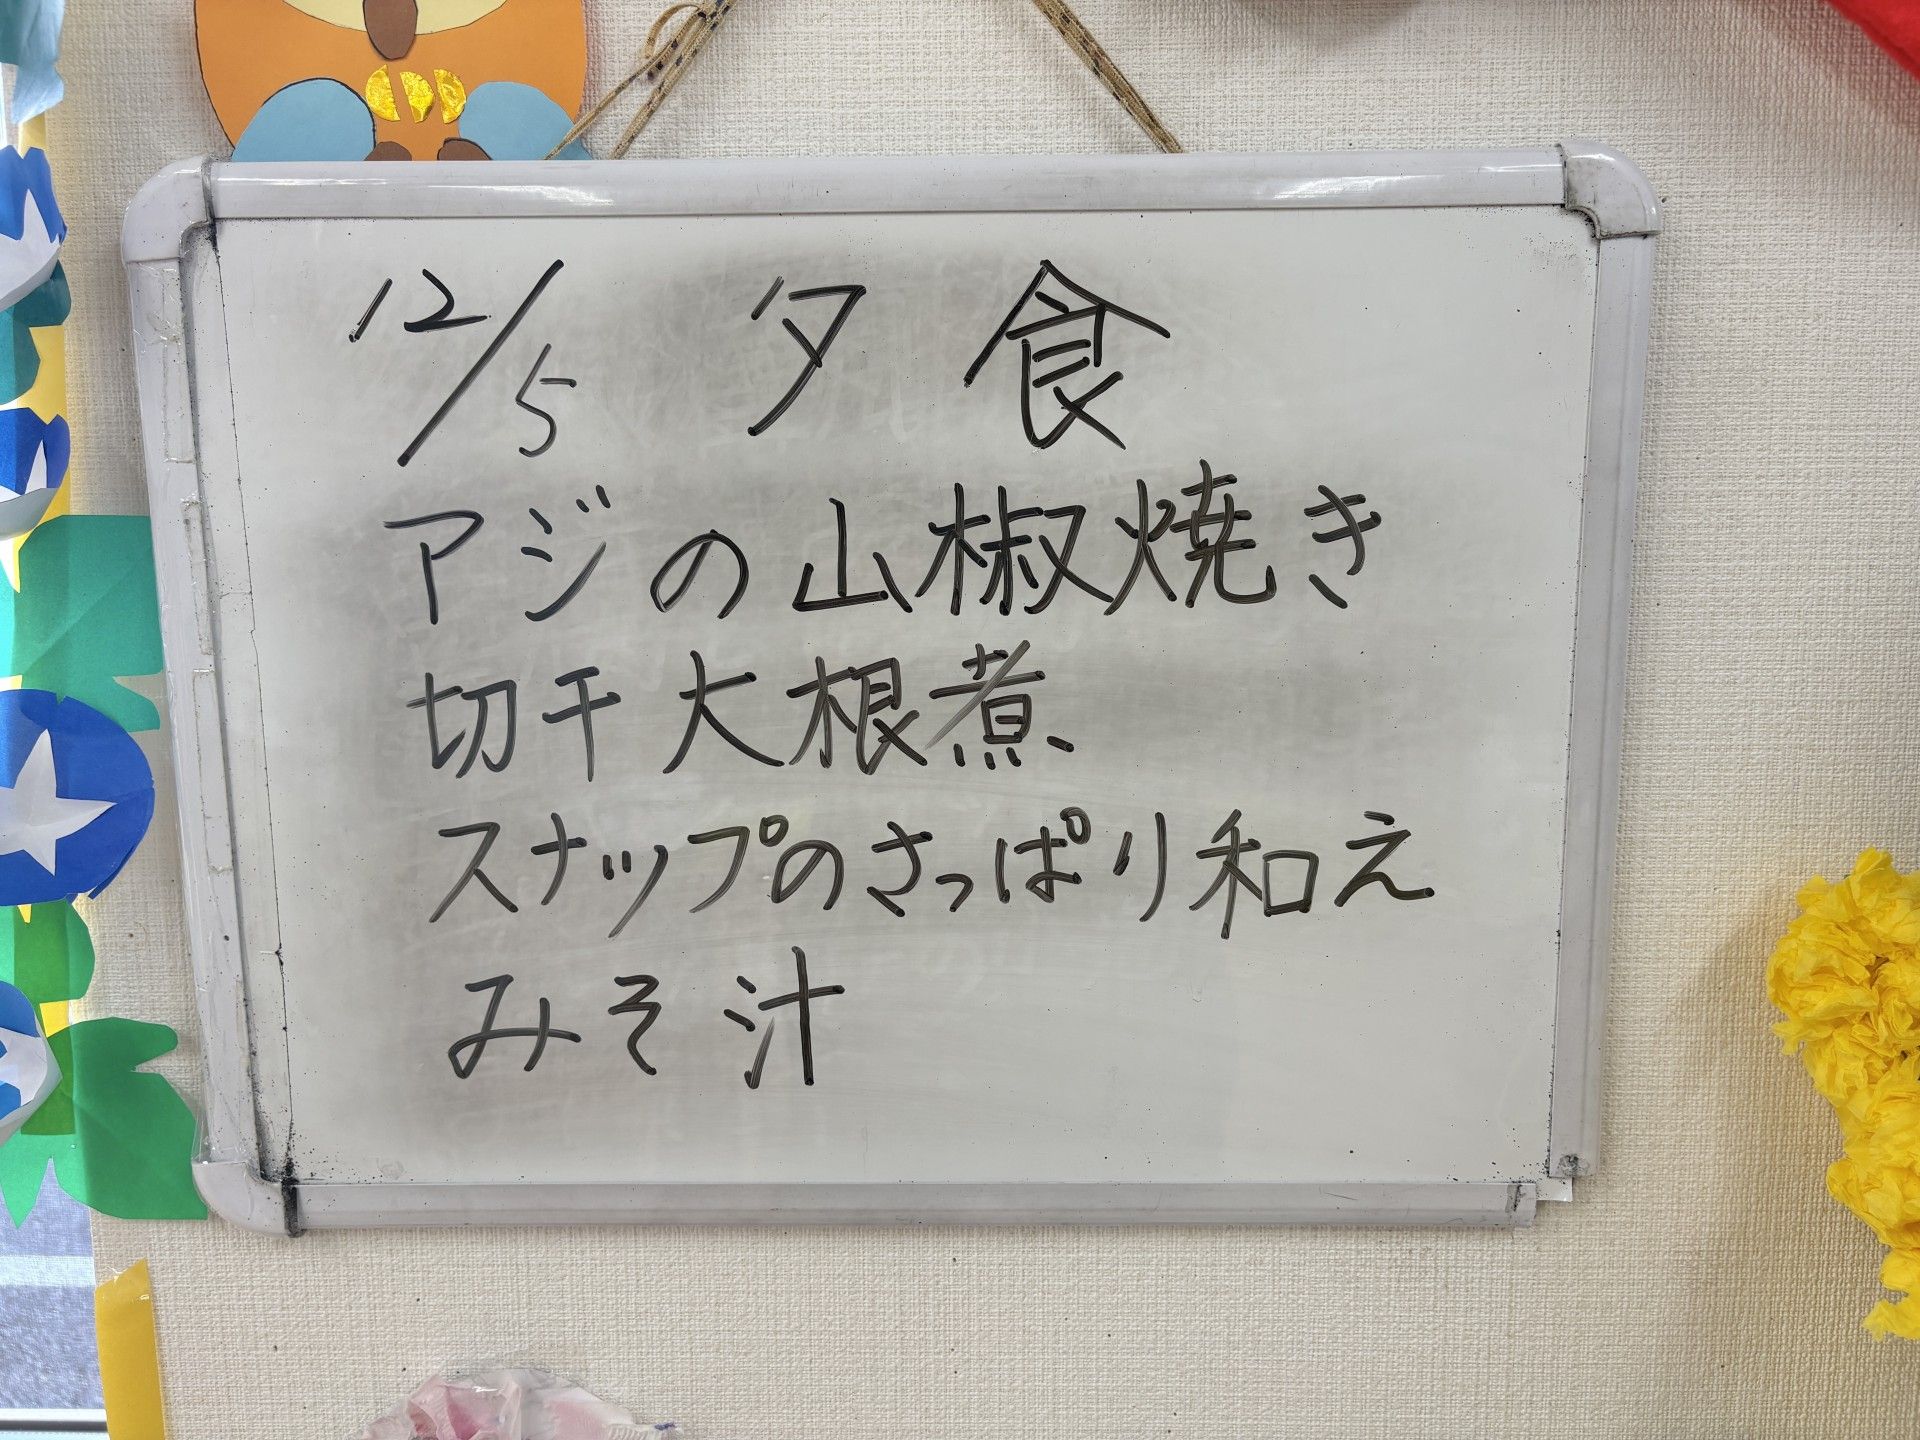 12/5 夕食
アジの山椒焼き
切干大根煮
スナップのさっぱり和え
みそ汁